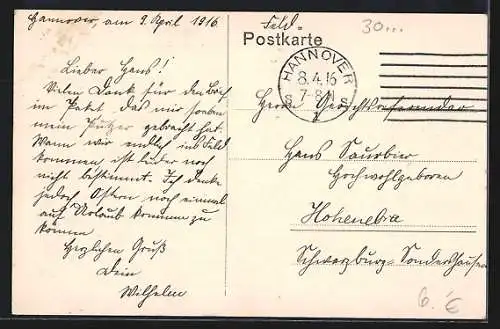 Hannover, am 9. April 1916
Lieber Hans!
Vielen Dank für den Brief
im Paket das mir soeben
mein Putzer gebracht hat.
Wann wir endlich ins Feld
kommen, ist leider noch
nicht bestimmt. Ich denke
jedoch Ostern noch einmal
auf Urlaub kommen zu
können
Herzlichen Gruß
Dein
Wilhelm
Feld-
30...
Postkarte
HANNOVER
8.4.16
7-8 N
S S
Herrn Gerichtsreferendar
Hans Saurbier
Hochwohlgeboren
Hohenebra
Schwarzburg-Sondershausen
6.€